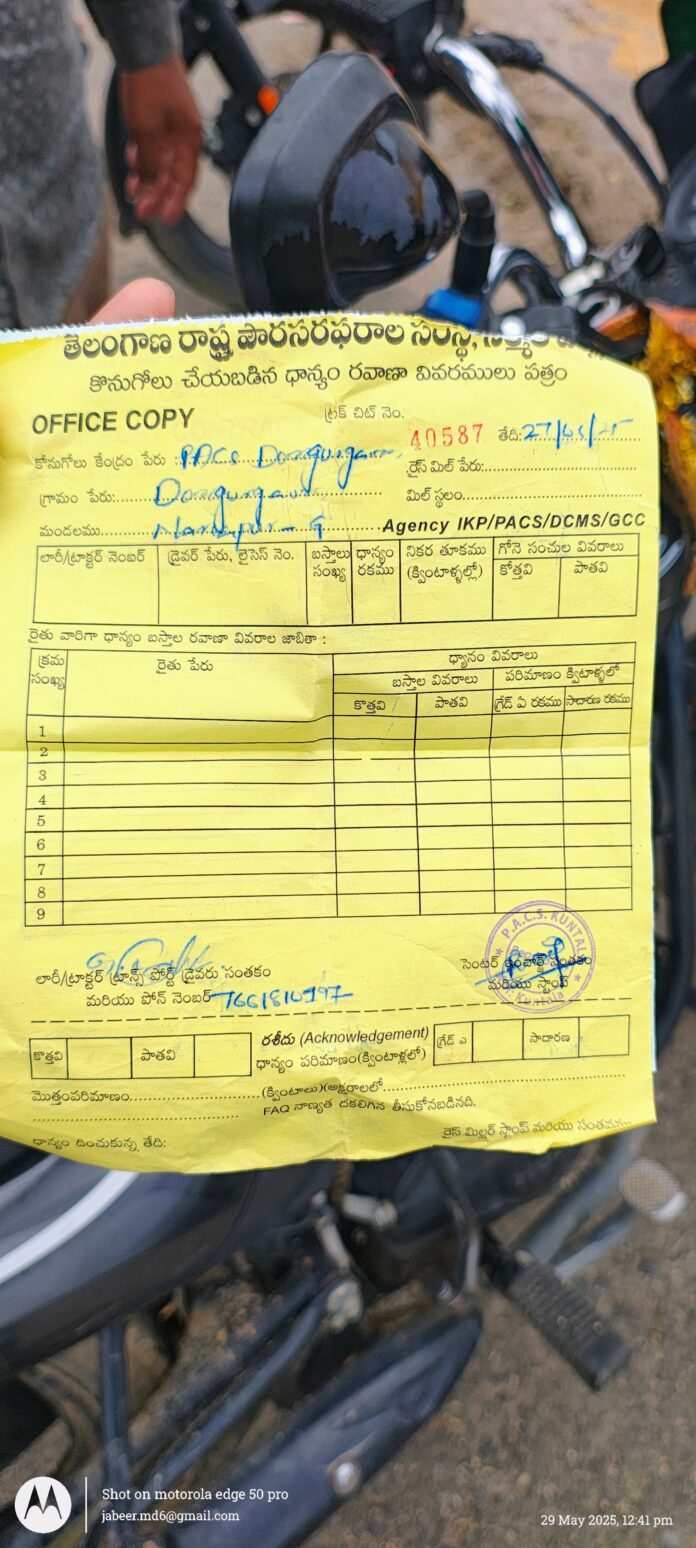 తెలంగాణ రాష్ట్ర పౌరసరఫరాల సంస్థ,
కొనుగోలు చేయబడిన ధాన్యం రవాణా వివరములు పత్రం
OFFICE COPY
ట్రక్ చిట్ నెం.
40587 తేది: 27/05/25
కొనుగోలు కేంద్రం పేరు : PACS Dongurgaon
రైస్ మిల్ పేరు:
గ్రామం పేరు: Dongurgaon
మిల్ స్థలం:
మండలము Narsapur - G
Agency IKP/PACS/DCMS/GCC
లారీ/ట్రాక్టర్ నెంబర్ డ్రైవర్ పేరు, లైసెన్ నెం. బస్తాలు సంఖ్య ధాన్యం రకము నికర తూకము (క్వింటాళ్ళల్లో) గోనె సంచుల వివరాలు
కొత్తవి పాతవి
రైతు వారిగా ధాన్యం బస్తాల రవాణా వివరాల జాబితా :
క్రమ సంఖ్య రైతు పేరు ధ్యానం వివరాలు
బస్తాల వివరాలు పరిమాణం క్వీటాళ్ళలో
కొత్తవి పాతవి గ్రేడ్ ఏ రకము సాదారణ రకము
1
2
3
4
5
6
7
8
9
P.A.C.S. KUNTALA
Kuntala
లారీ/ట్రాక్టర్ ట్రాన్స్ పోర్ట్ డ్రైవరు సంతకం
మరియు పోన్ నెంబర్
సెంటర్ ఇంచార్జ్ సంతకం
మరియు స్టాంప్
కొత్తవి పాతవి
రశీదు (Acknowledgement)
ధాన్యం పరిమాణం(క్వింటాల్లలో)
గ్రేడ్ ఎ సాదారణ
మొత్తంపరిమాణం (క్వింటాలు)(అక్షరాలలో
FAQ నాణ్యత దకలిగిన తీసుకోనబడినది.
ధాన్యం దించుకున్న తేది:
రైస్ మిల్లర్ స్టాంప్ మరియు సంతకము
Shot on motorola edge 50 pro
jabeer.md6@gmail.com
29 May 2025, 12:41 pm